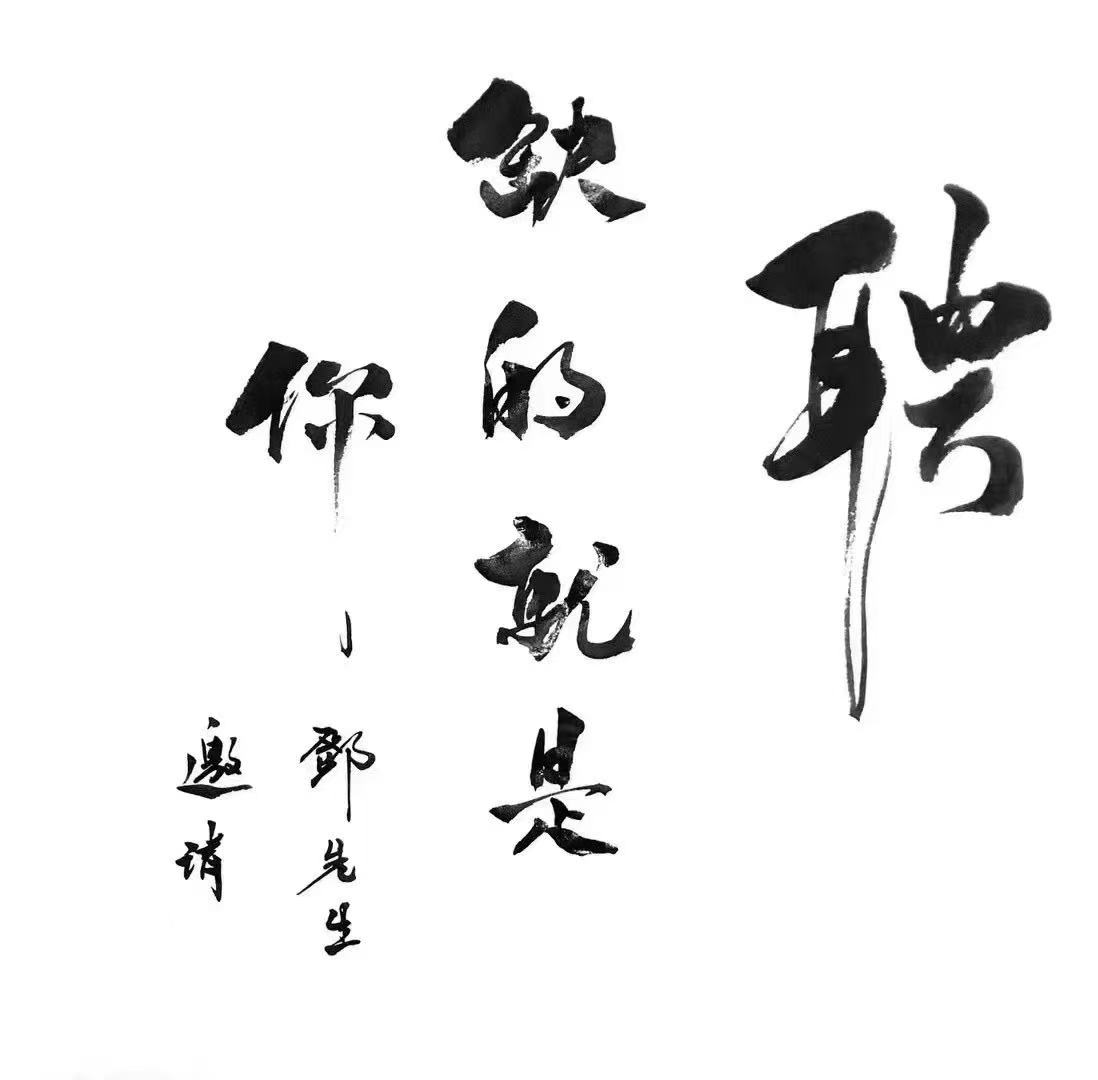 聘
缺的就是
你
鄧先生
邀请